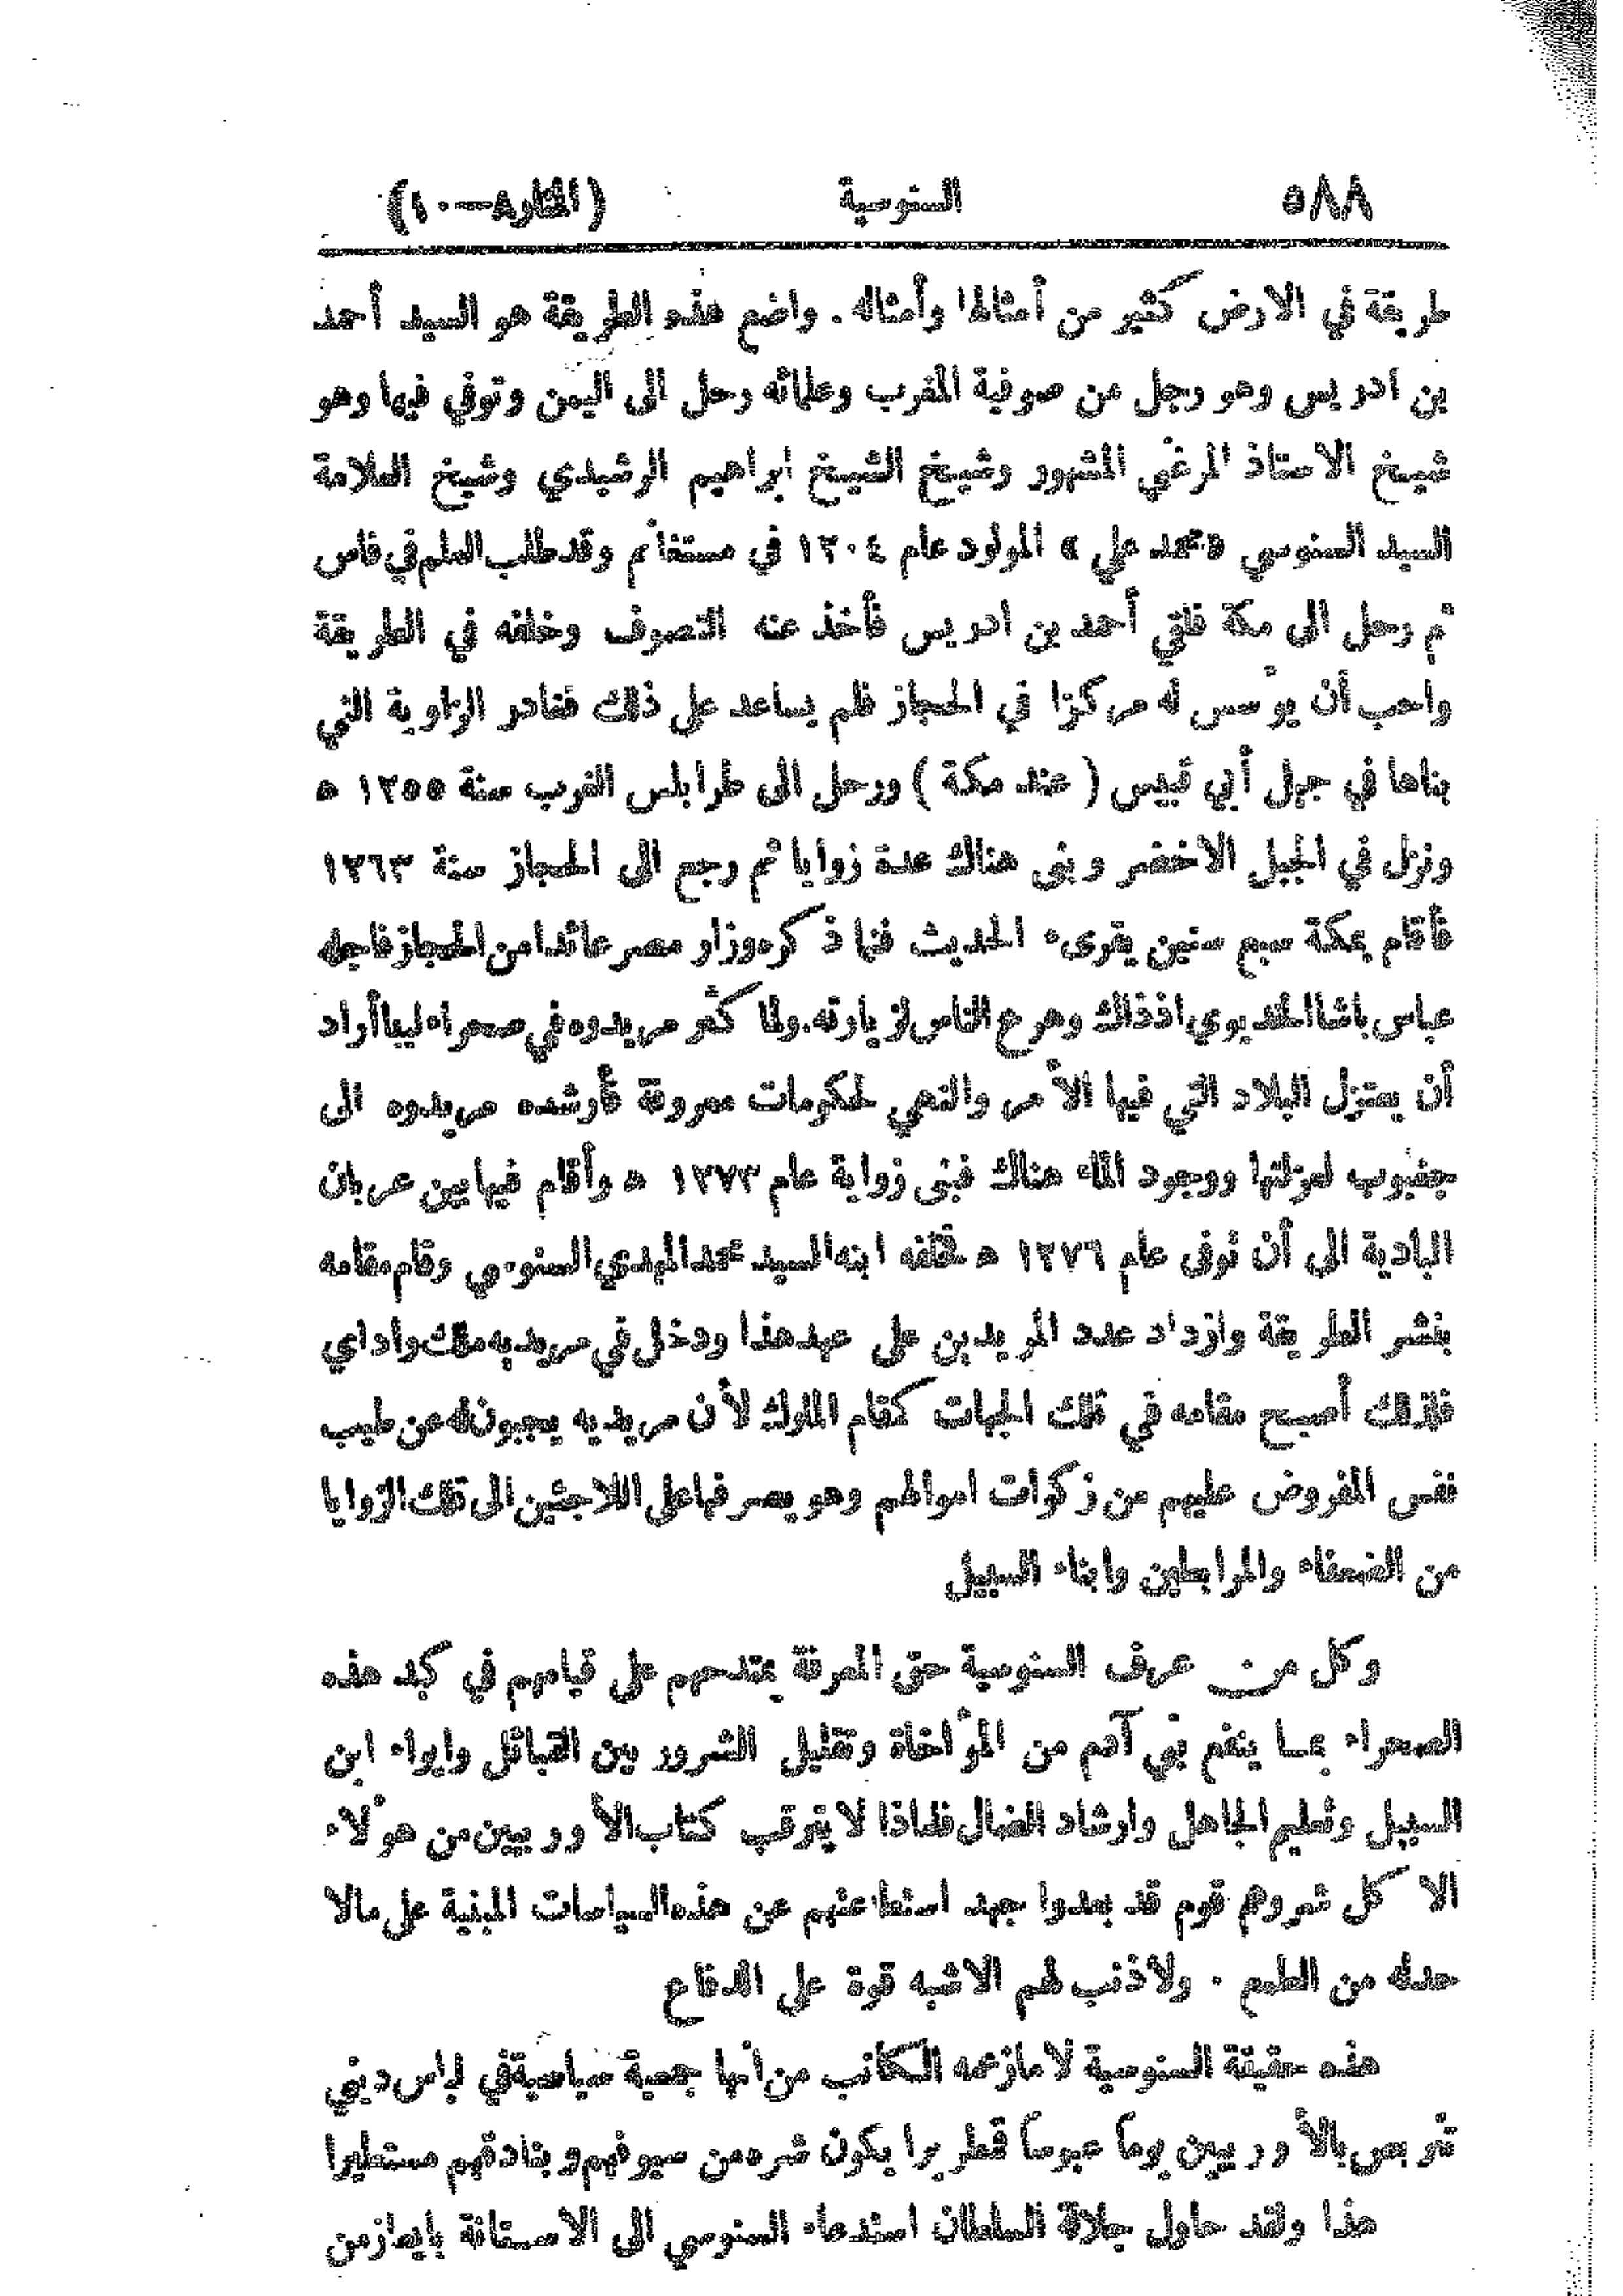 ٥٨٨ السنوسية (المنار ٨–١٠)
طريقة في الارض كثير من أمثالها وأمثاله . واضع هذه الطريقة هو السيد أحمد
بن ادريس وهو رجل من صوفية المغرب وعلمائه رحل الى اليمن وتوفي فيها وهو
شيخ الاستاذ المرغني المشهور وشيخ الشيخ ابراهيم الرشيدي وشيخ العلامة
السيد السنوسي «محمد علي» المولود عام ١٢٠٤ في مستغانم وقد طلب العلم في فاس
ثم رحل الى مكة فلقي أحمد بن ادريس فأخذ عنه التصوف وخلفه في الطريقة
واحب أن يؤسس له مركزا في الحجاز فلم يساعد على ذلك فغادر الزاوية التي
بناها في جبل أبي قبيس ( عند مكة ) ورحل الى طرابلس الغرب سنة ١٢٥٥ ه
ونزل في الجبل الاخضر وبنى هناك عدة زوايا ثم رجع الى الحجاز سنة ١٢٦٣
فأقام بمكة سبع سنين يقرىء الحديث فنما ذكره وزار مصر عائدا من الحجاز فاجله
عباس باشا الخديوي اذ ذاك وهرع الناس لزيارته. ولما كثر مريدوه في صحراء ليبيا أراد
أن يعتزل البلاد التي فيها الأمر والنهي لحكومات معروفة فأرشده مريدوه الى
جغبوب لعزلتها ووجود الماء هناك فبنى زواية عام ١٢٧٣ ه وأقام فيها بين عربان
البادية الى أن توفى عام ١٢٧٦ ه فخلفه ابنه السيد محمد المهدي السنوسي وقام مقامه
بنشر الطريقة وازداد عدد المريدين على عهد هذا ودخل في مريديه ملك واداي
فلذلك أصبح مقامه في تلك الجهات كمقام الملوك لأن مريديه يجبون له عن طيب
نفس المفروض عليهم من زكوات اموالهم وهو يصرفها على اللاجئين الى تلك الزوايا
من الضعفاء والمرابطين وابناء السبيل
وكل من عرف السنوسية حق المعرفة يمتدحهم على قيامهم في كبد هذه
الصحراء بما ينفع بني آدم من المؤاخاة وتقليل الشرور بين القبائل وايواء ابن
السبيل وتعليم الجاهل وارشاد الضال فلماذا لا يترقب كتاب الأوربيين من هؤلاء
الا كل شر وهم قوم قد بعدوا جهد استطاعتهم عن هذه السياسات المبنية على مالا
حد له من الطمع . ولا ذنب لهم الا شبه قوة على الدفاع
هذه حقيقة السنوسية لا مازعمه الكاتب من انها جمعية سياسية في لباس ديني
تتربص بالأوربيين يوماً عبوساً قمطريرا يكون شره من سيوفهم وبنادقهم مستطيرا
هذا ولقد حاول جلالة السلطان استدعاء السنوسي الى الاستانة بايعاز من